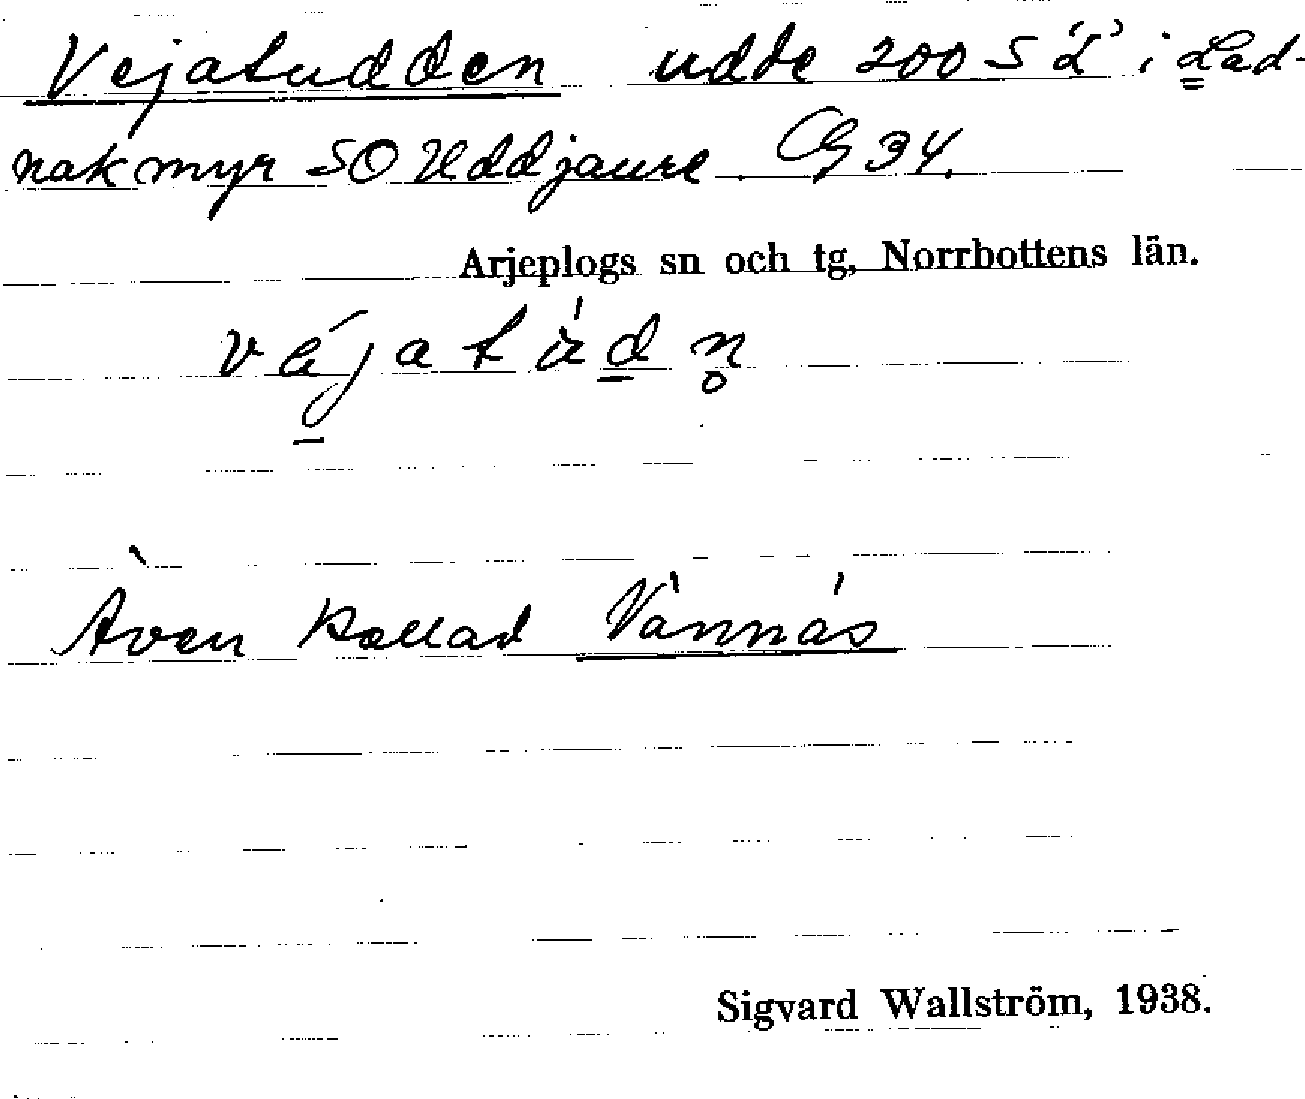 Vejatudden udde 200 S 'L' i Lad-
nakmyr SO Uddjaure. CG 34.
Arjeplogs sn och tg, Norrbottens län.
Även kallad Vännäs
Sigvard Wallström, 1938.